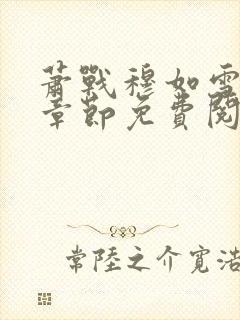 萧戰穆如雪
章節免費閱
常陸之介寛浩